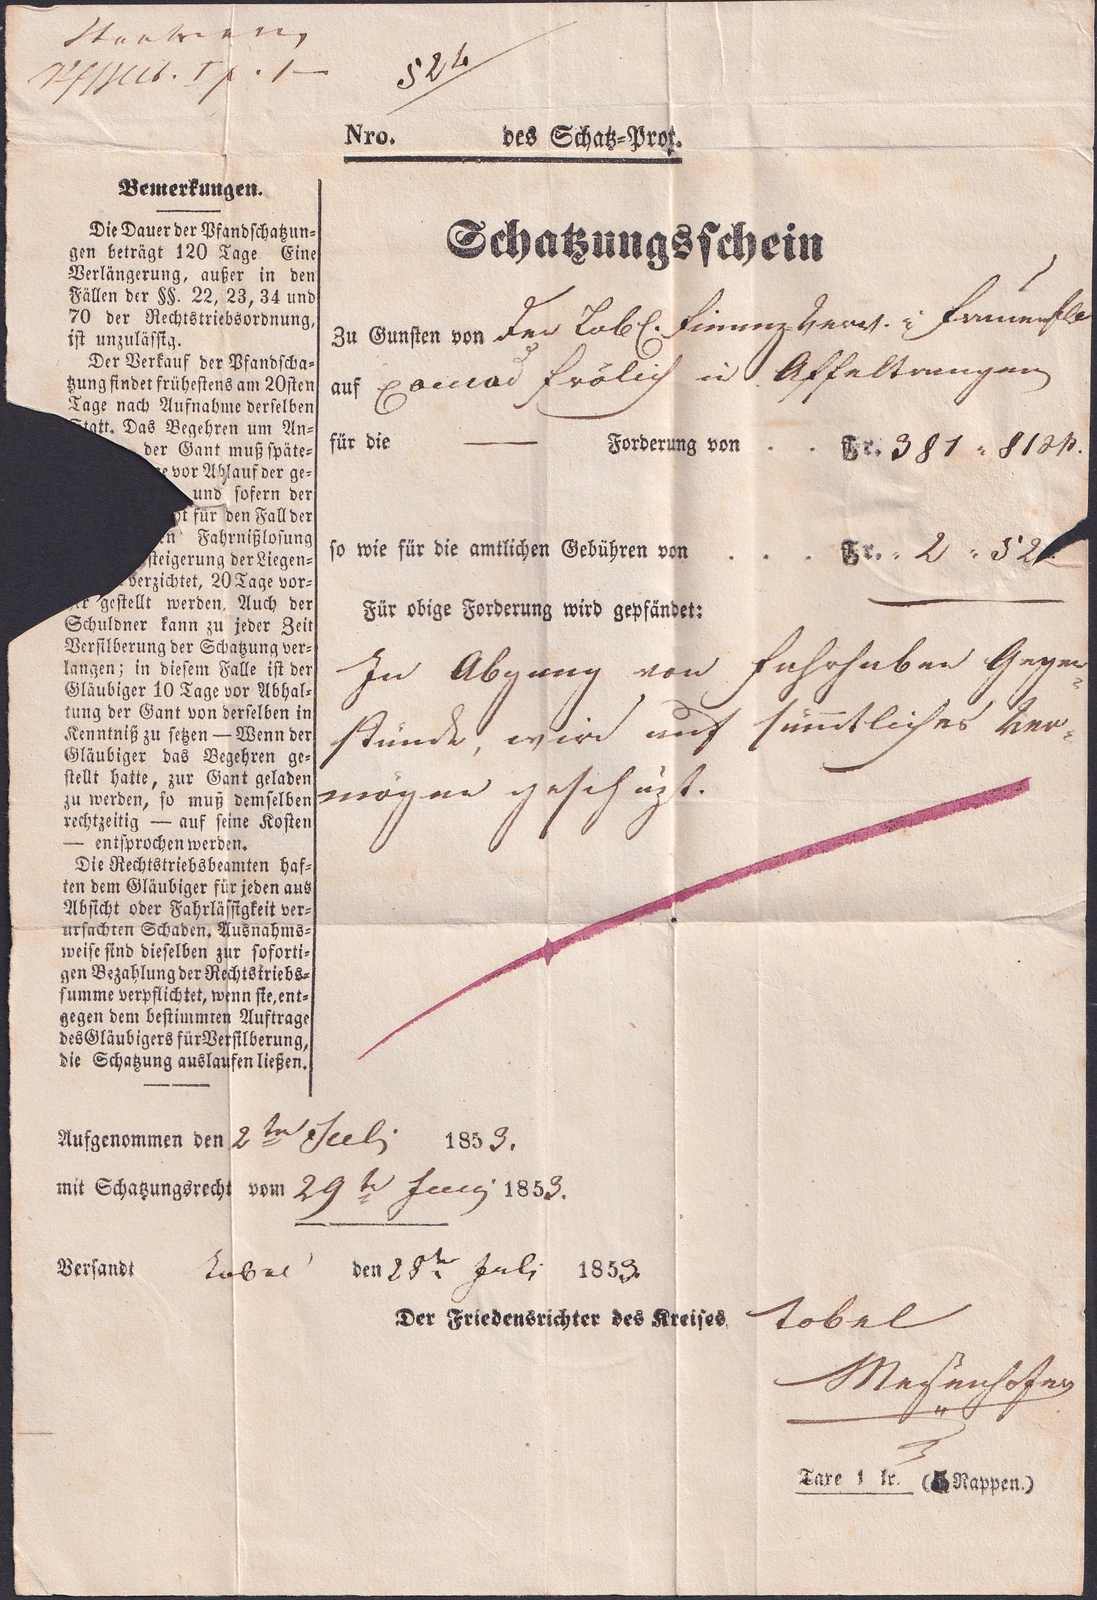 524
Nro. des Schatz-Prot.
Bemerkungen.
Die Dauer der Pfandschatzun-
gen beträgt 120 Tage Eine
Verlängerung, außer in den
Fällen der §§. 22, 23, 34 und
70 der Rechtstriebsordnung,
ist unzulässig.
Der Verkauf der Pfandscha-
tzung findet frühestens am 20sten
Tage nach Aufnahme derselben
Statt. Das Begehren um An-
der Gant muß späte-
vor Ablauf der ge-
und sofern der
für den Fall der
Fahrnißlosung
steigerung der Liegen-
verzichtet, 20 Tage vor-
gestellt werden. Auch der
Schuldner kann zu jeder Zeit
Versilberung der Schatzung ver-
langen; in diesem Falle ist der
Gläubiger 10 Tage vor Abhal-
tung der Gant von derselben in
Kenntniß zu setzen — Wenn der
Gläubiger das Begehren ge-
stellt hatte, zur Gant geladen
zu werden, so muß demselben
rechtzeitig — auf seine Kosten
— entsprochen werden.
Die Rechtstriebsbeamten haf-
ten dem Gläubiger für jeden aus
Absicht oder Fahrlässigkeit ver-
ursachten Schaden. Ausnahms-
weise sind dieselben zur soforti-
gen Bezahlung der Rechtstriebs-
summe verpflichtet, wenn sie, ent-
gegen dem bestimmten Auftrage
des Gläubigers für Versilberung,
die Schatzung auslaufen ließen.
Schatzungsschein
Zu Gunsten von der Lobl. Finanzverw. i Frauenfld
auf Conrad Frölich in Affeltrangen
für die — Forderung von . . Fr. 381 " 81 Rp.
so wie für die amtlichen Gebühren von . . . Fr. " 2 " 52
Für obige Forderung wird gepfändet:
In Abgang von fahrhaben Gegen-
stände, wird auf sämmtliches Ver-
mögen geschäzt.
Aufgenommen den 2ten Juli 1853.
mit Schatzungsrecht vom 29te Juni 1853.
Versandt Tobel den 28te Juli 1853.
Der Friedensrichter des Kreises Tobel
Taxe 1 kr. (5 Rappen.)